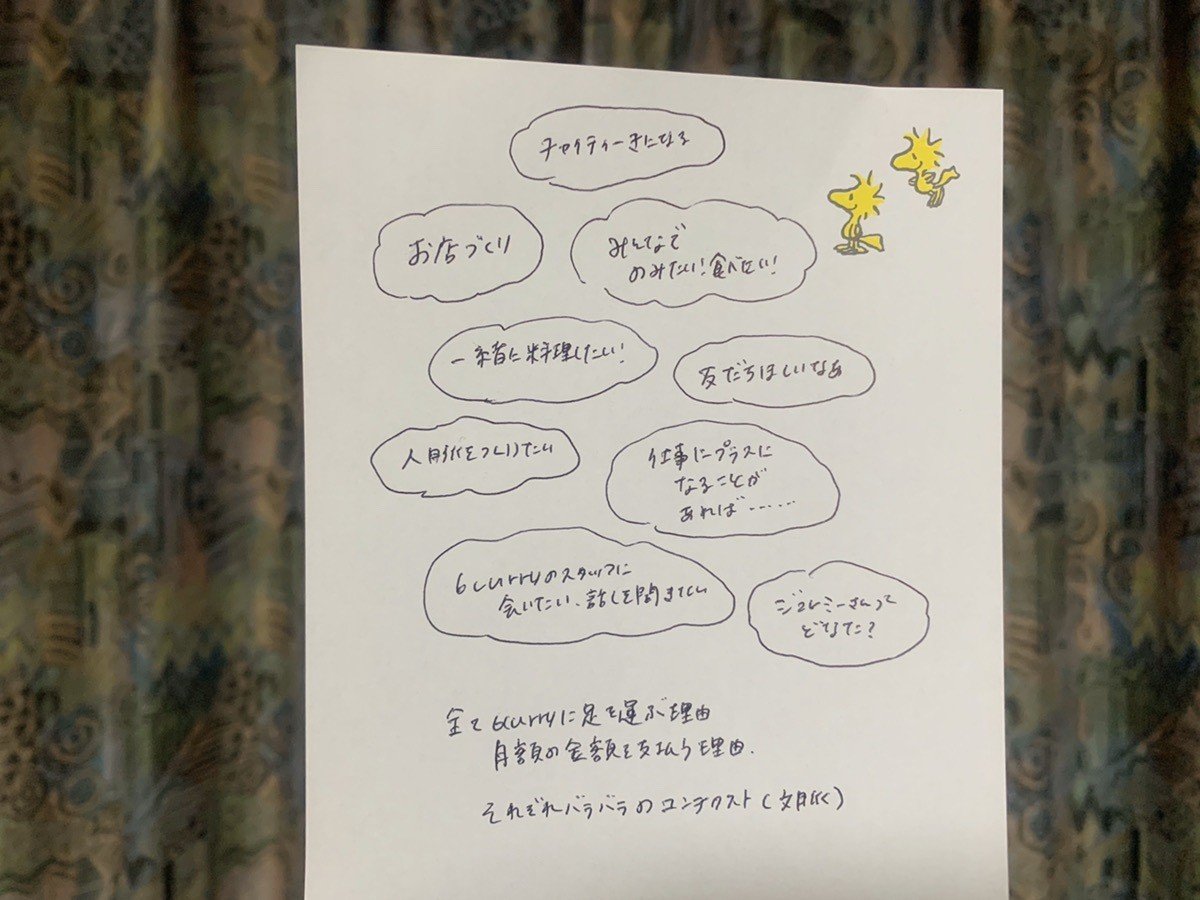 チャイティー気になる
お店づくり
みんなで
のみたい！食べたい！
一緒に料理したい！
友だちほしいなぁ
人脈をつくりたい
仕事にプラスに
なることが
あれば……
6curryのスタッフに
会いたい、話しを聞きたい
ジェレミーさんって
どなた？
全て6curryに足を運ぶ理由
月額の金額を支払う理由.
それぞれバラバラのコンテクスト(文脈)